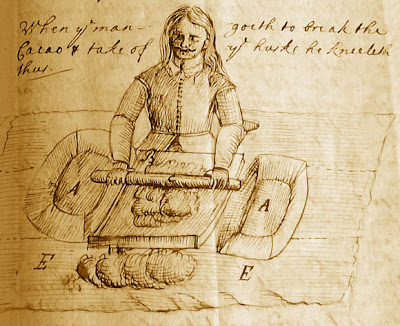 When yͤ man goeth to break the
Cacao & take of yͤ huske he kneeleth
thus.
B
A A
E E